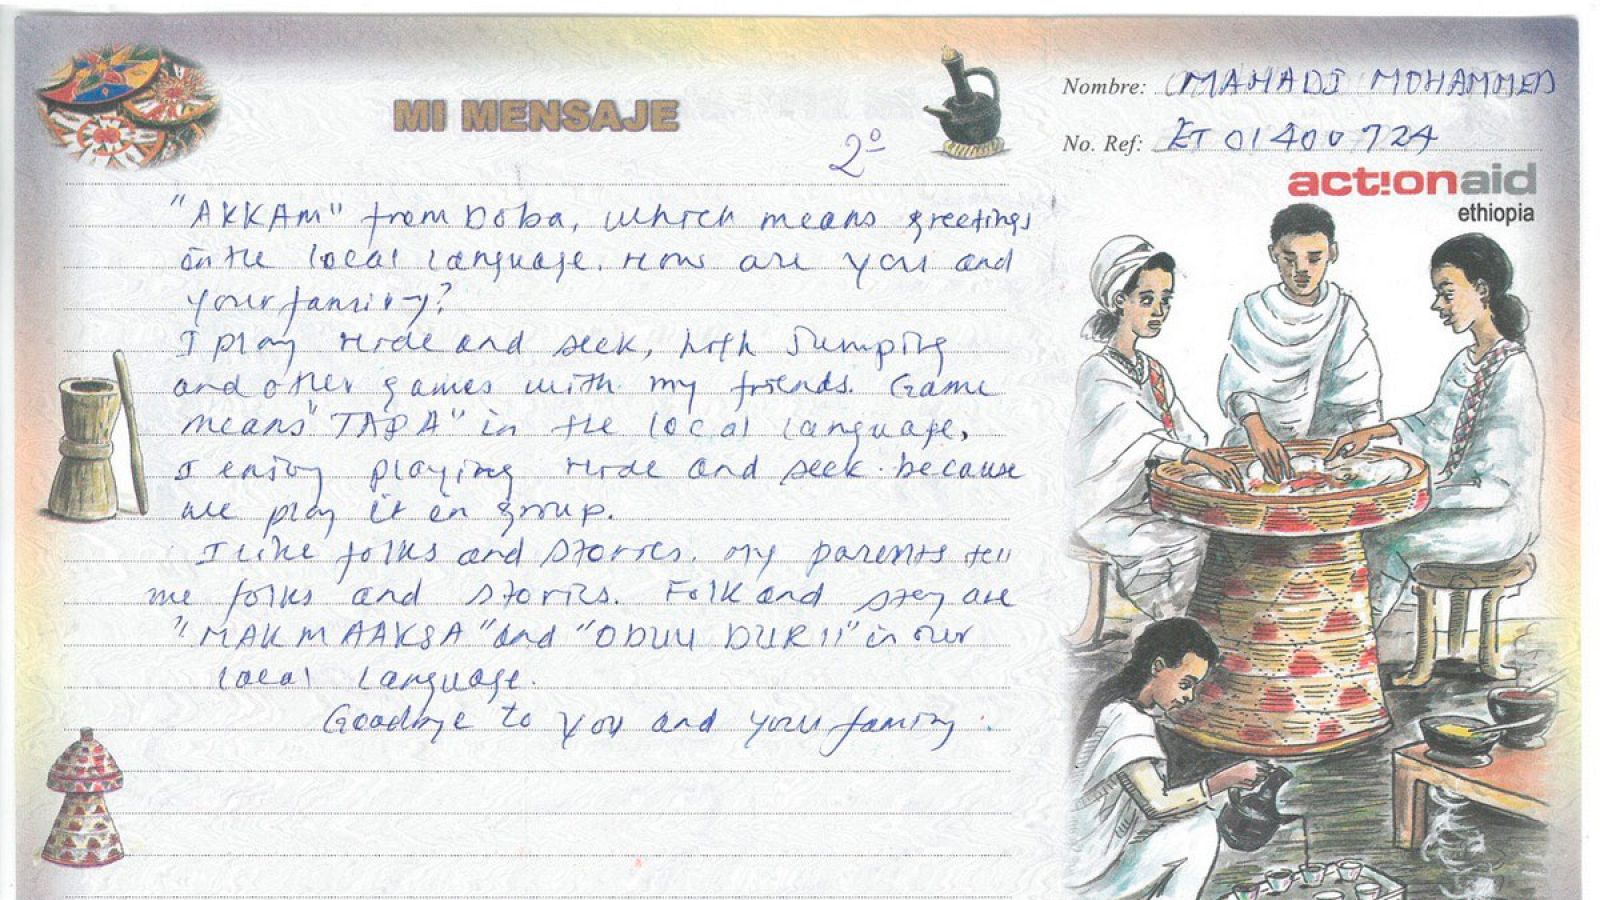 MI MENSAJE
2º
Nombre: MAHADI MOHAMMED
No. Ref: ET 01400724
act!onaid
ethiopia
"AKKAM" from Doba, which means greetings
in the local language. How are you and
your family?
I play Hide and seek, high Jumping
and other games with my friends. Game
means "TAPA" in the local language,
I enjoy playing Hide and seek because
we play it in group.
I like folks and stories. my parents tell
me folks and stories. Folk and story are
"MAKMAAKSA" and "ODUU DURII" in our
local language.
Goodbye to you and your family.